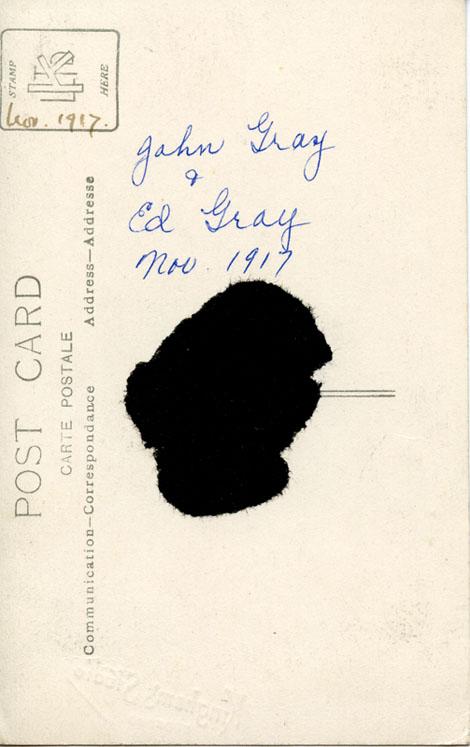 STAMP
HERE
Nov. 1917.
John Gray
&
Ed Gray
Nov 1917
POST CARD
CARTE POSTALE
Communication—Correspondance
Address—Addresse